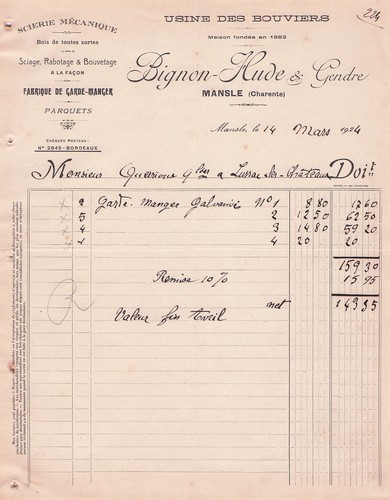 224
SCIERIE MÉCANIQUE
Bois de toutes sortes
Sciage, Rabotage & Bouvetage
A LA FAÇON
FABRIQUE DE GARDE-MANGER
PARQUETS
CHÈQUES POSTAUX:
N° 2645 - BORDEAUX
USINE DES BOUVIERS
Maison fondée en 1883
Bignon-Hude & Gendre
MANSLE (Charente)
Mansle, le 14 Mars 1924
Monsieur à Lussac les Châteaux Doit
2 Garde-Manger Galvanisé N° 1 8 80 17 60
5 2 12 50 62 50
4 3 14 80 59 20
1 4 20 20
159 30
Remise 10% 15 95
net 143 35
Valeur fin Avril